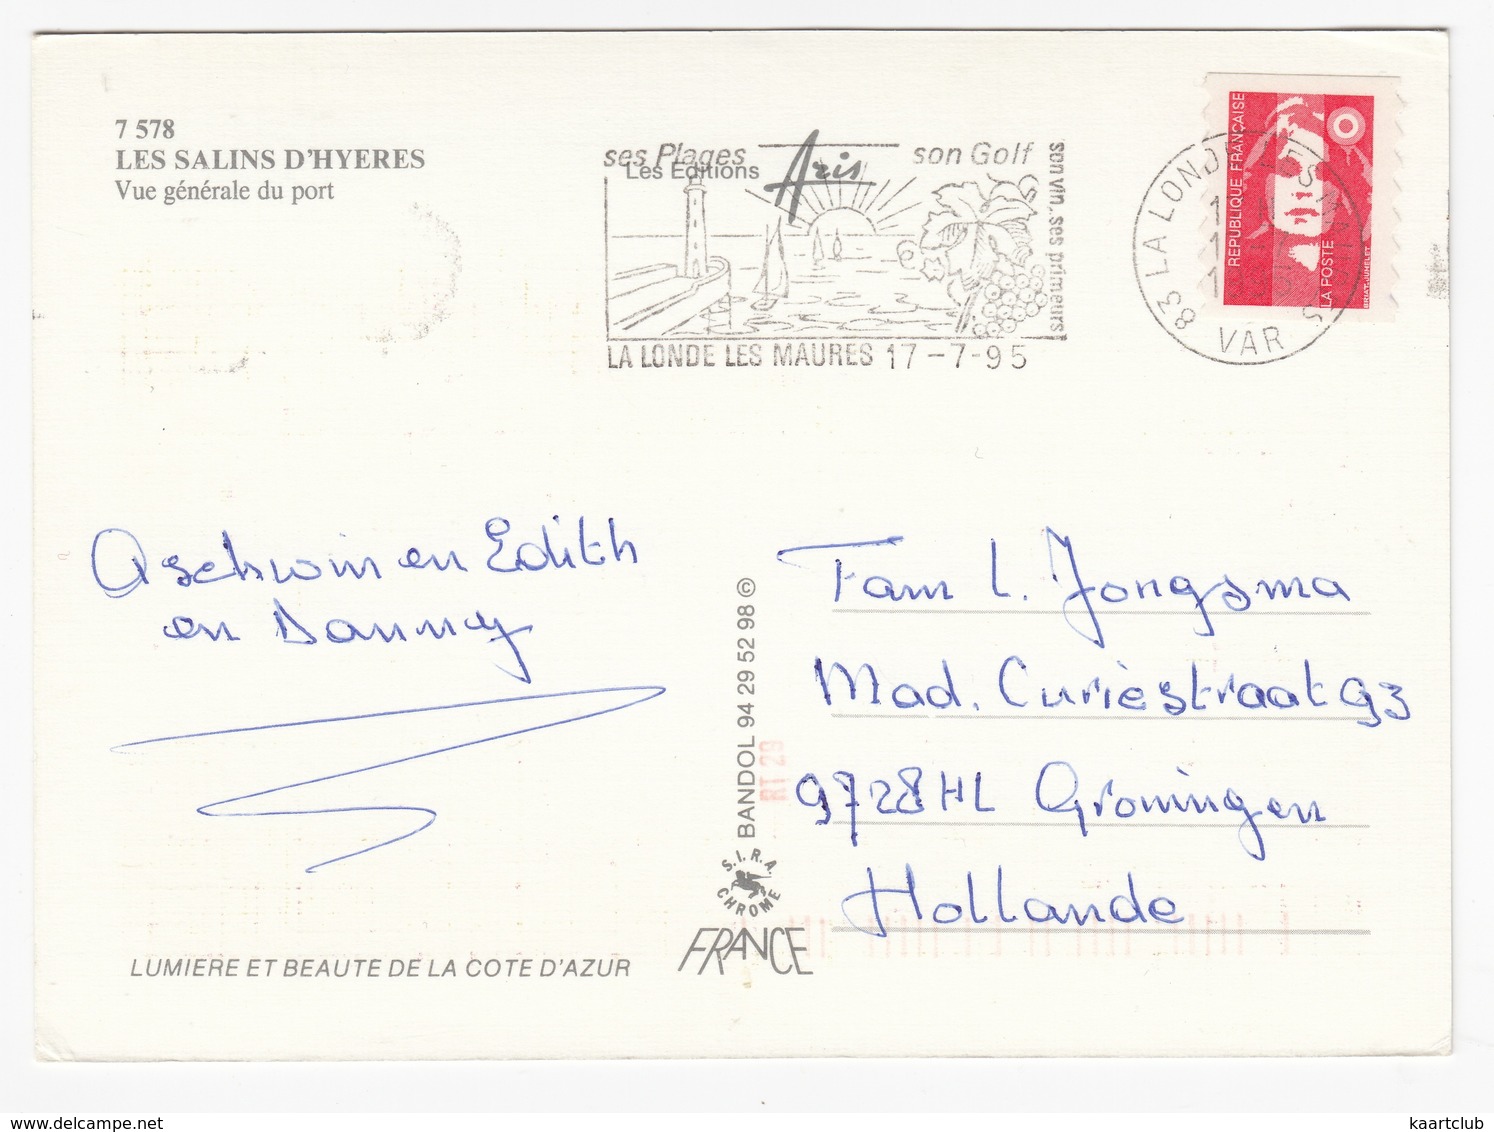 7 578
LES SALINS D'HYERES
Vue générale du port
ses Plages
son Golf
Les Editions
Aris
son vin, ses primeurs
LA LONDE LES MAURES 17-7-95
83 LA LONDE LES MAURES
VAR
REPUBLIQUE FRANÇAISE
LA POSTE
BRIAT-JUMELET
Aschwin en Edith
en Danny
Fam L. Jongsma
Mad. Curiestraat 93
9728 HL Groningen
Hollande
BANDOL 94 29 52 98 ©
RT 29
S.I.R.A.
CHROME
FRANCE
LUMIERE ET BEAUTE DE LA COTE D'AZUR
kaartclub